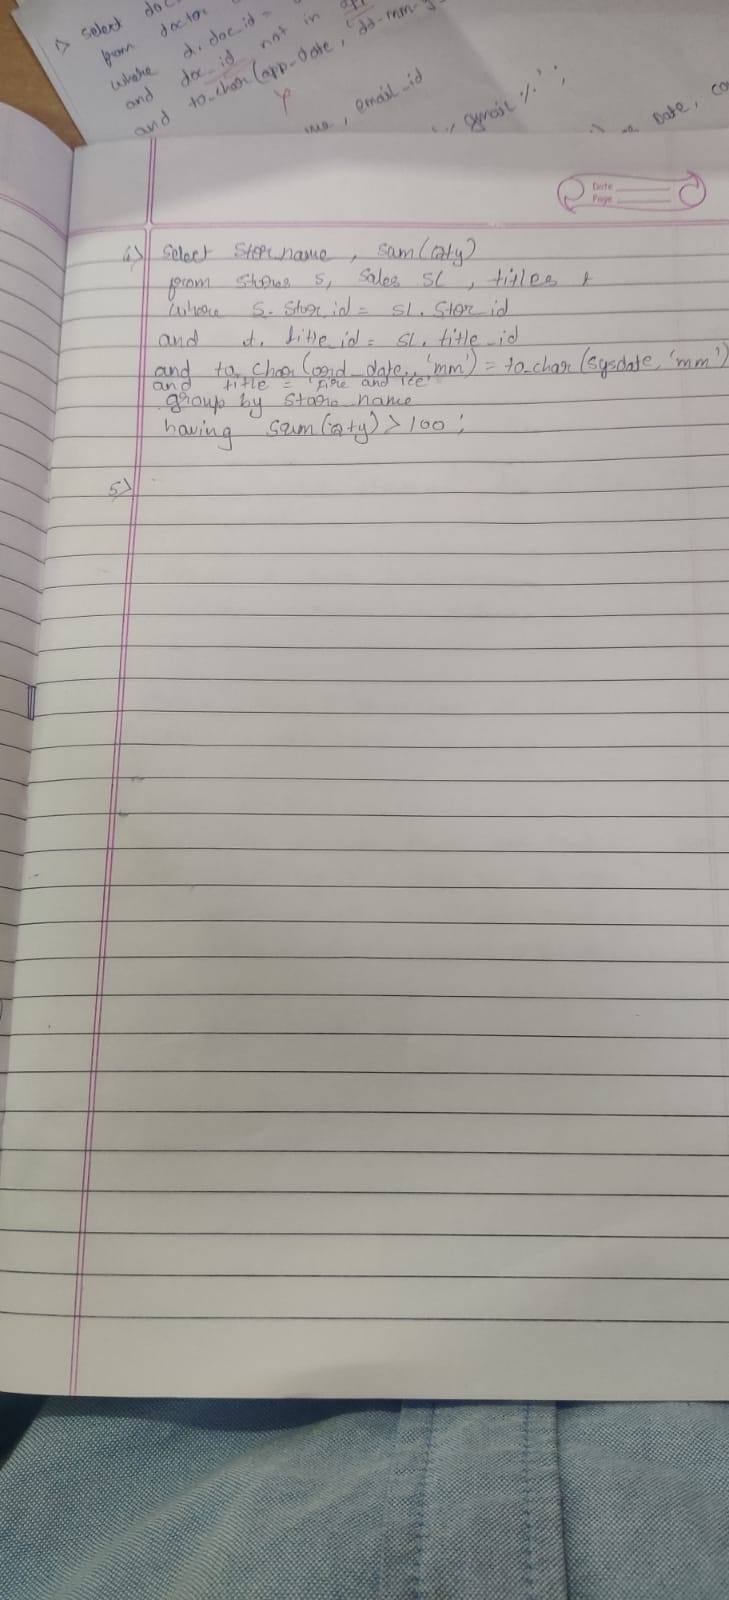 1) select doc
from doctor
where d.doc_id =
and doc_id not in
and to_char(app_date, 'dd-mm-
and
, email_id
gmail %';
Date, co
Date
Page
4) select stor_name, sum(qty)
from stores s, sales sl, titles t
where s.stor_id = sl.stor_id
and t.title_id = sl.title_id
and to_char(ord_date, 'mm') = to_char(sysdate, 'mm')
and title = 'Fire and Ice'
group by store_name
having sum(qty) > 100;
5)